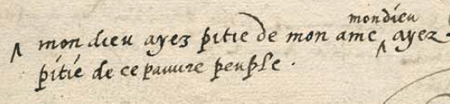 mondieu
mon dieu ayez pitie de mon ame ayez
pitié de ce pauure peuple.